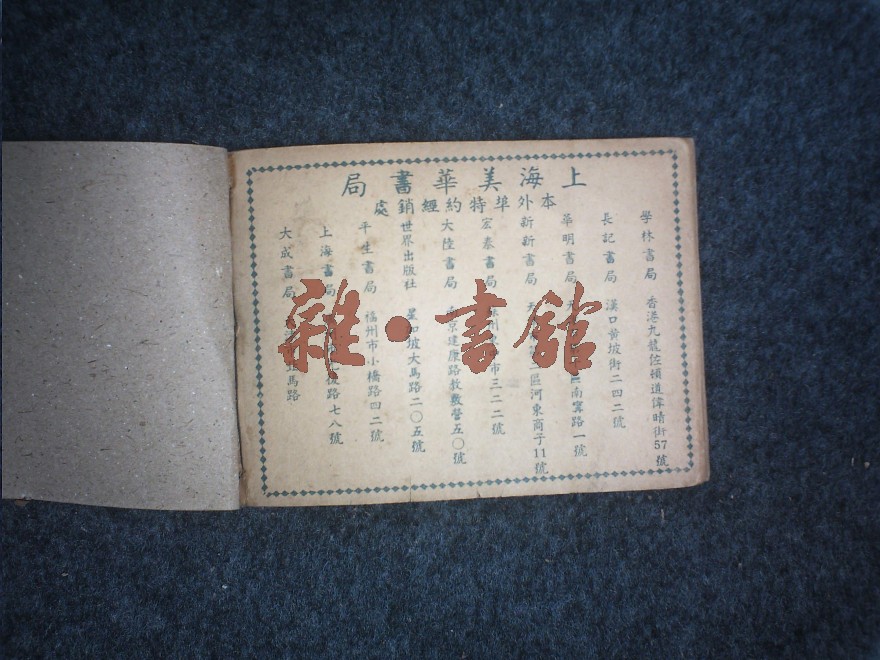 上海美華書局
本外埠特約經銷處
學林書局 香港九龍佐頓道偉晴街57號
長記書局 漢口黄坡街二四二號
華明書局 天 區南寗路一號
新新書局 天 二區河東商子11號
宏泰書局 市三二二號
大陸書局 南京建康路教敷營五〇號
世界出版社 星加坡大馬路二〇五號
平生書局 福州市小橋路四二號
上海書局 後路七八號
大成書局 馬路
雜·書館